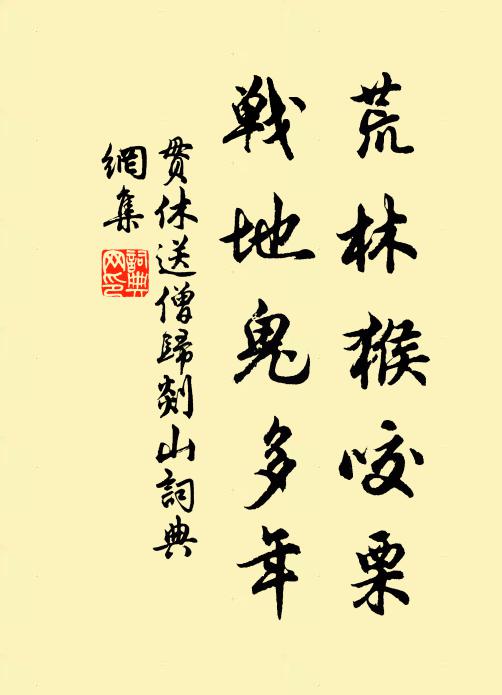 荒林猴咬栗
戦地鬼多年
贯休送僧歸剡山詞典
網集
詞典
网印